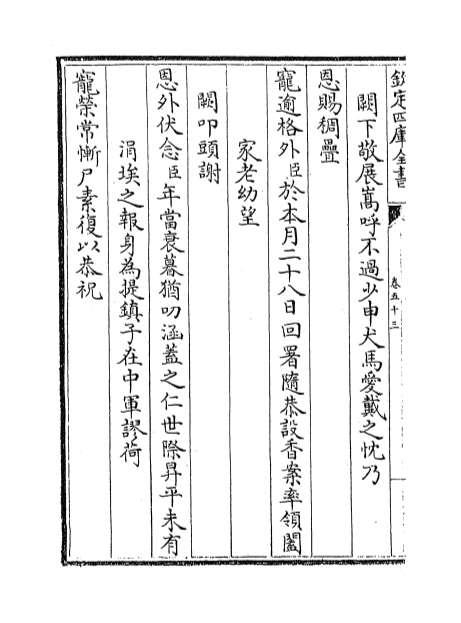 欽定四庫全書
卷五十三
闕下敬展嵩呼不過少申犬馬愛戴之忱乃
恩賜稠疊
寵逾格外臣於本月二十八日回署隨恭設香案率領闔
家老幼望
闕叩頭謝
恩外伏念臣年當衰暮猶叨涵蓋之仁世際昇平未有
涓埃之報身為提鎮子在中軍謬荷
寵榮常慚尸素復以恭祝